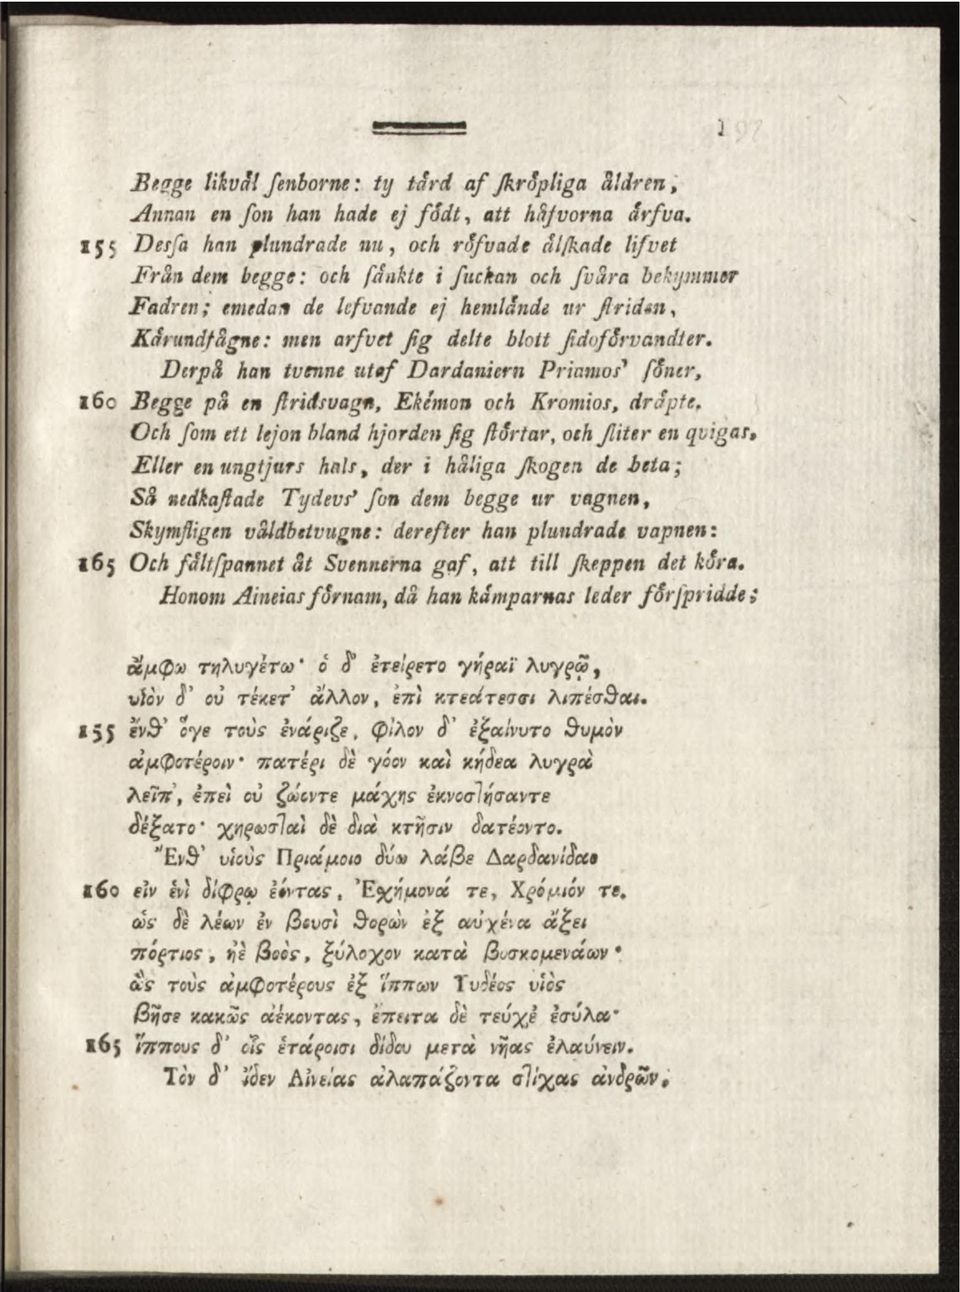 Begge likvål ſenborne: ty tård af ſkrôpliga åldren,
Annan en ſon han hade ej fôdt, att håſvorna årfva.
155 Desſa han plundrade nu, och rôfvade ålſkade lifvet
Från dem begge: och ſånkte i ſuckan och ſvåra bekymmer
Fadren; emedan de lefvande ej hemlånde ur ſtriden,
Kårundfågne: men arfvet ſig delte blott ſidofôrvandter.
Derpå han tvenne utaf Dardaniern Priamos' ſôner,
160 Begge på en ſtridsvagn, Ekémon och Kromios, dråpte.
Och ſom ett lejon bland hjorden ſig ſtôrtar, och ſliter en qvigas,
Eller en ungtjurs hals, der i håliga ſkogen de beta;
Så nedkaſtade Tydevs' ſon dem begge ur vagnen,
Skymfligen våldbetvugne: derefter han plundrade vapnen:
165 Och fåltſpannet åt Svennerna gaf, att till ſkeppen det kôra.
Honom Aineias fôrnam, då han kåmparnas leder fôrſpridde;
ἄμφω τηλυγέτω· ὁ δ' ἐτείρετο γήραϊ λυγρῷ,
υἱὸν δ' οὐ τέκετ' ἄλλον, ἐπὶ κτεάτεσσι λιπέσθαι.
155 ἔνθ' ὅγε τοὺς ἐνάριζε, φίλον δ' ἐξαίνυτο θυμὸν
ἀμφοτέροιν· πατέρι δὲ γόον καὶ κήδεα λυγρὰ
λεῖπ', ἐπεὶ οὐ ζώοντε μάχης ἐκνοστήσαντε
δέξατο· χηρωσταὶ δὲ διὰ κτῆσιν δατέοντο.
Ἔνθ' υἱοὺς Πριάμοιο δύω λάβε Δαρδανίδαο
160 εἰν ἑνὶ δίφρῳ ἐόντας, Ἐχήμονά τε, Χρόμιόν τε.
ὡς δὲ λέων ἐν βουσὶ θορὼν ἐξ αὐχένα ἄξει
πόρτιος, ἠὲ βοὸς, ξύλοχον κατὰ βοσκομενάων·
ὣς τοὺς ἀμφοτέρους ἐξ ἵππων Τυδέος υἱὸς
βῆσε κακῶς ἀέκοντας, ἔπειτα δὲ τεύχἐ ἐσύλα·
165 ἵππους δ' οἷς ἑτάροισι δίδου μετὰ νῆας ἐλαύνειν.
Τὸν δ' ἴδεν Αἰνείας ἀλαπάζοντα στίχας ἀνδρῶν,